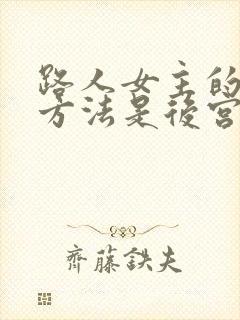 路人女主的
方法是後宮
齊藤鉄夫